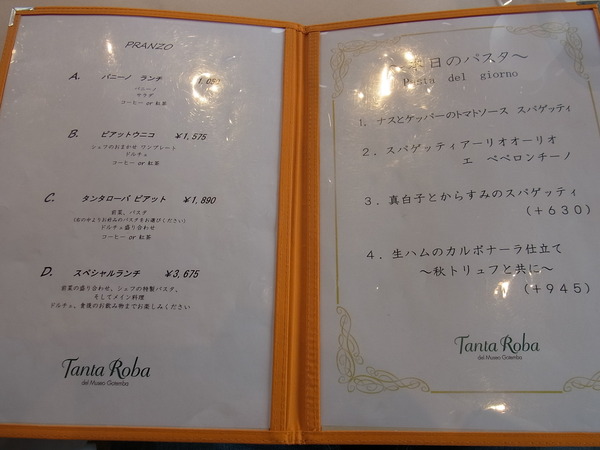 PRANZO
A. パニーノ ランチ
パニーノ
サラダ
コーヒー or 紅茶
B. ピアットウニコ ¥1,575
シェフのおまかせ ワンプレート
ドルチェ
コーヒー or 紅茶
C. タンタローバ ピアット ¥1,890
前菜、パスタ
(右のせよりお好みのパスタをお選びください)
ドルチェ盛り合わせ
コーヒー or 紅茶
D. スペシャルランチ ¥3,675
前菜の盛り合わせ、シェフの特製パスタ、
そしてメイン料理
ドルチェ、食後のお飲み物までお楽しみください
Tanta Roba
del Museo Gotemba
~本日のパスタ~
Pasta del giorno
1. ナスとケッパーのトマトソース スパゲッティ
2. スパゲッティアーリオオーリオ
エ ペペロンチーノ
3. 真白子とからすみのスパゲッティ
(+630)
4. 生ハムのカルボナーラ仕立て
~秋トリュフと共に~
(+945)
Tanta Roba
del Museo Gotemba